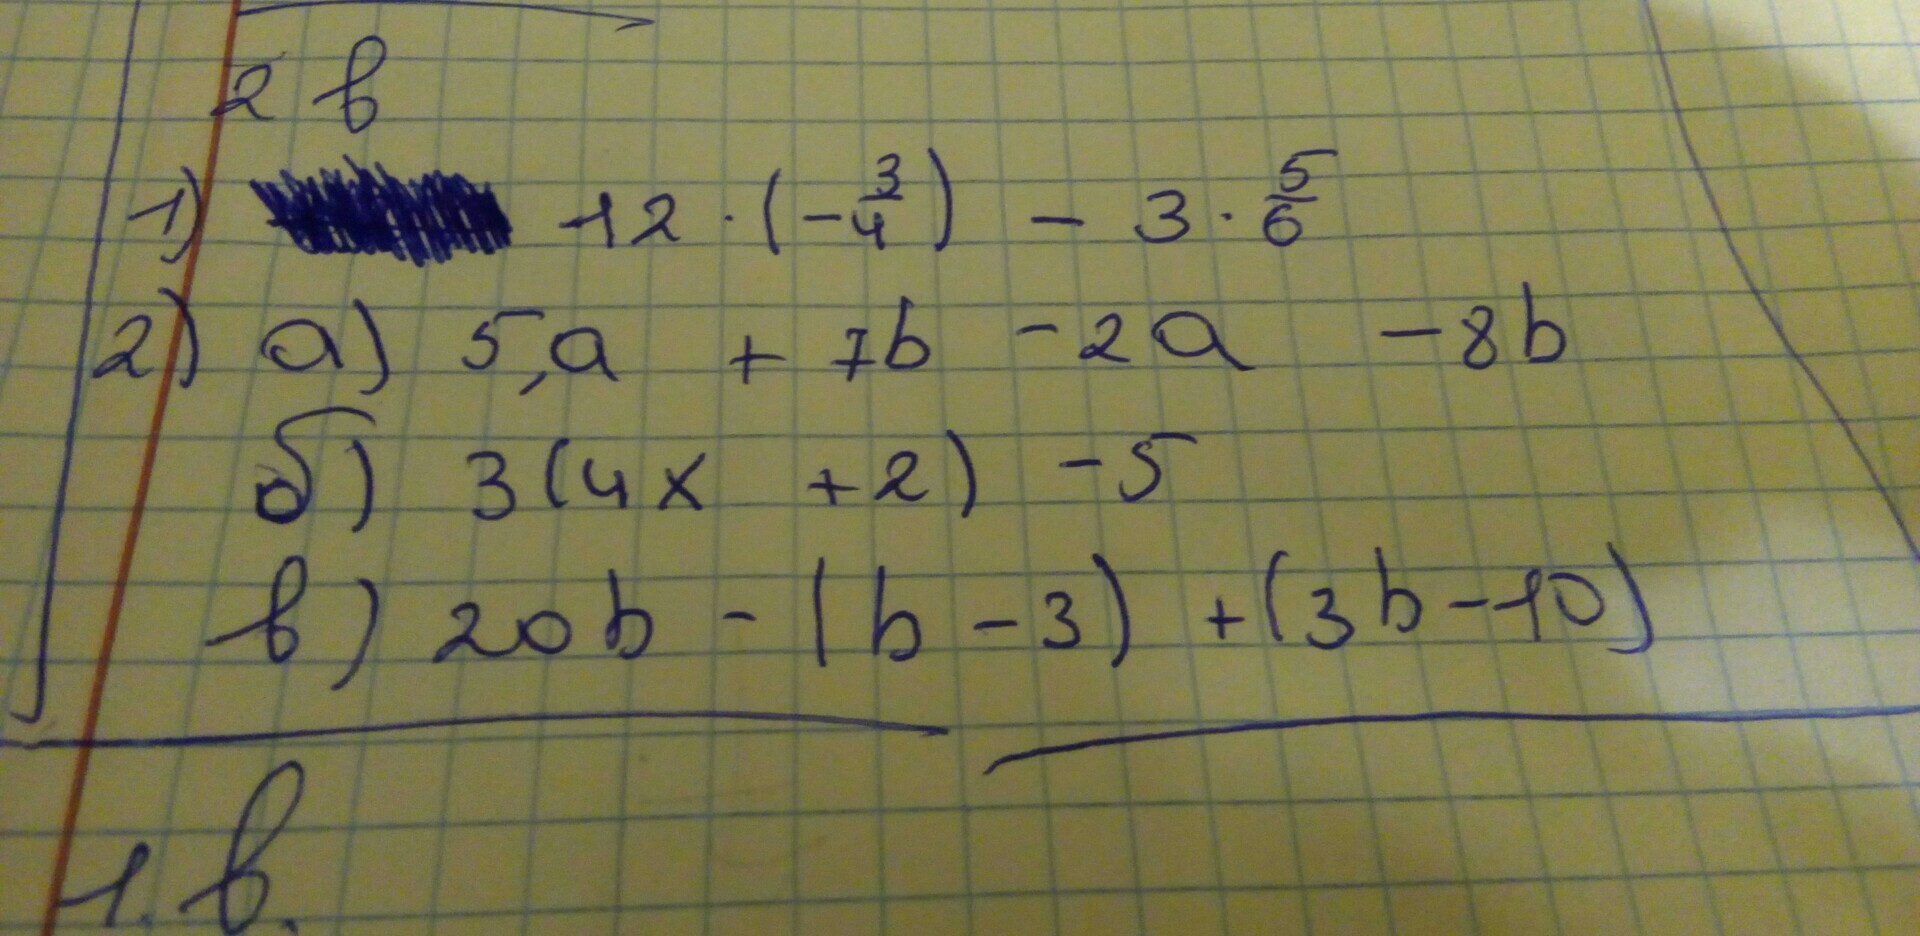 2 в
1) 12 · (-3/4) - 3 · 5/6
2) а) 5,a + 7b - 2a - 8b
б) 3(4x + 2) - 5
в) 20b - (b - 3) + (3b - 10)
1. в.